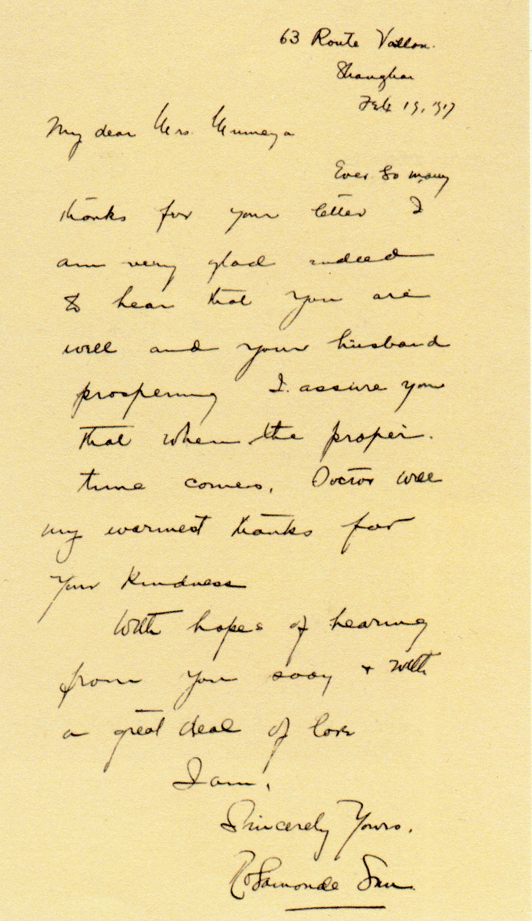 63 Route Vallon.
Shanghai
Feb 19, 1917
My dear Mrs. Umeya
Ever so many
thanks for your letter I
am very glad indeed
to hear that you are
well and your husband
prospering I assure you
that when the proper.
time comes, Doctor will
my warmest thanks for
your kindness
With hopes of hearing
from you soon + with
a great deal of love
I am,
Sincerely Yours.
Rosamonde Sun